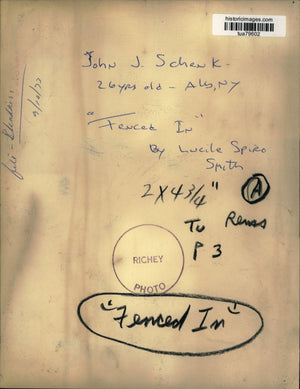 historicimages.com
tua79602
*John J. Schenk -
26 yrs old - Alb, NY
"Fenced In"
By Lucile Spiro
Smith
2 X 4 3/4"
A
To
P 3
RICHEY
PHOTO
"Fenced In"